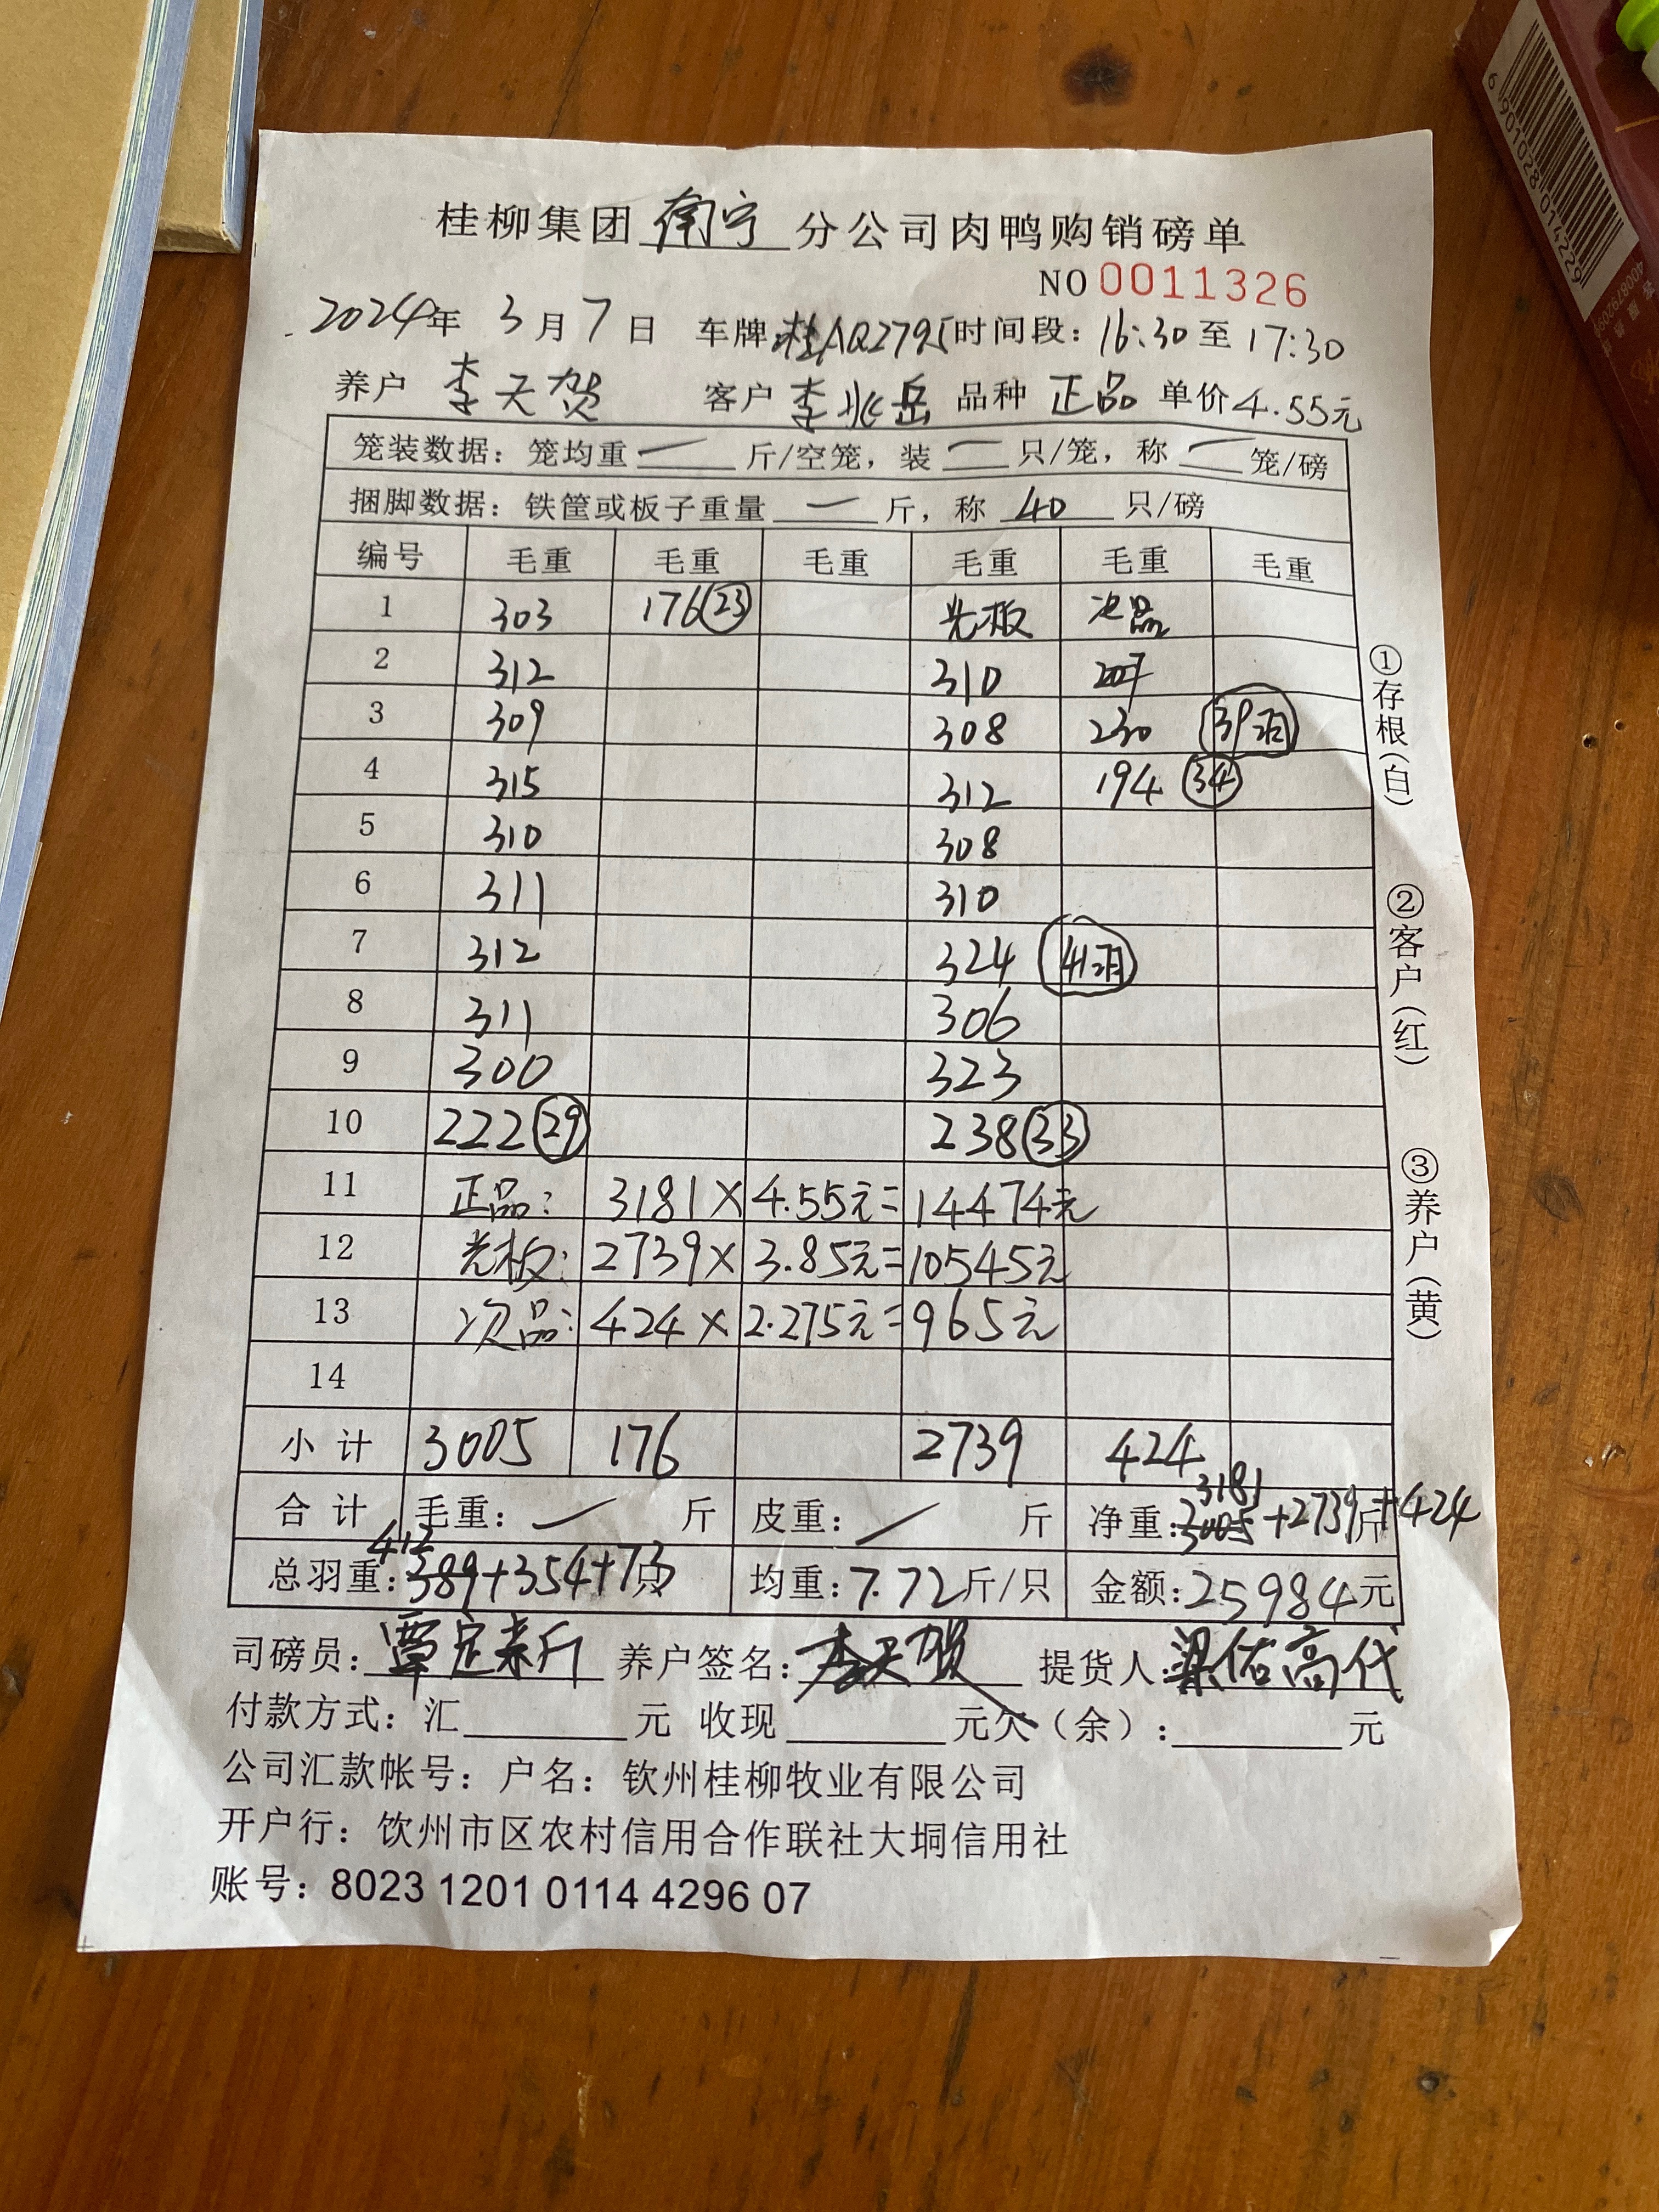 桂柳集团南宁分公司肉鸭购销磅单
NO 0011326
2024年 3月 7日 车牌桂AQ2795时间段：16:30至17:30
养户 李天贺 客户 李兆岳 品种 正品 单价4.55元
笼装数据：笼均重 一 斤/空笼，装 一 只/笼，称 一 笼/磅
捆脚数据：铁筐或板子重量 一 斤，称 40 只/磅
编号 毛重 毛重 毛重 毛重 毛重 毛重
1 303 176(23) 光板 次品
2 312 310
3 309 308 230
4 315 312 194 (34)
5 310 308
6 311 310
7 312 324
8 311 306
9 300 323
10 222(29) 238(33)
11 正品： 3181× 4.55元= 14474元
12 光板： 2739× 3.85元= 10545元
13 次品： 424× 2.275元= 965元
14
小计 3005 176 2739 424
合计 毛重： 斤 皮重： 斤 净重：3005 3181+2739斤+424
总羽重：389 412+354+73只 均重：7.72斤/只 金额：25984元
司磅员： 养户签名：李天贺 提货人：梁佑高代
付款方式：汇 元 收现 元欠（余）： 元
公司汇款帐号：户名：钦州桂柳牧业有限公司
开户行：饮州市区农村信用合作联社大垌信用社
账号：8023 1201 0114 4296 07
①存根（白）
②客户（红）
③养户（黄）
6 901028 014229